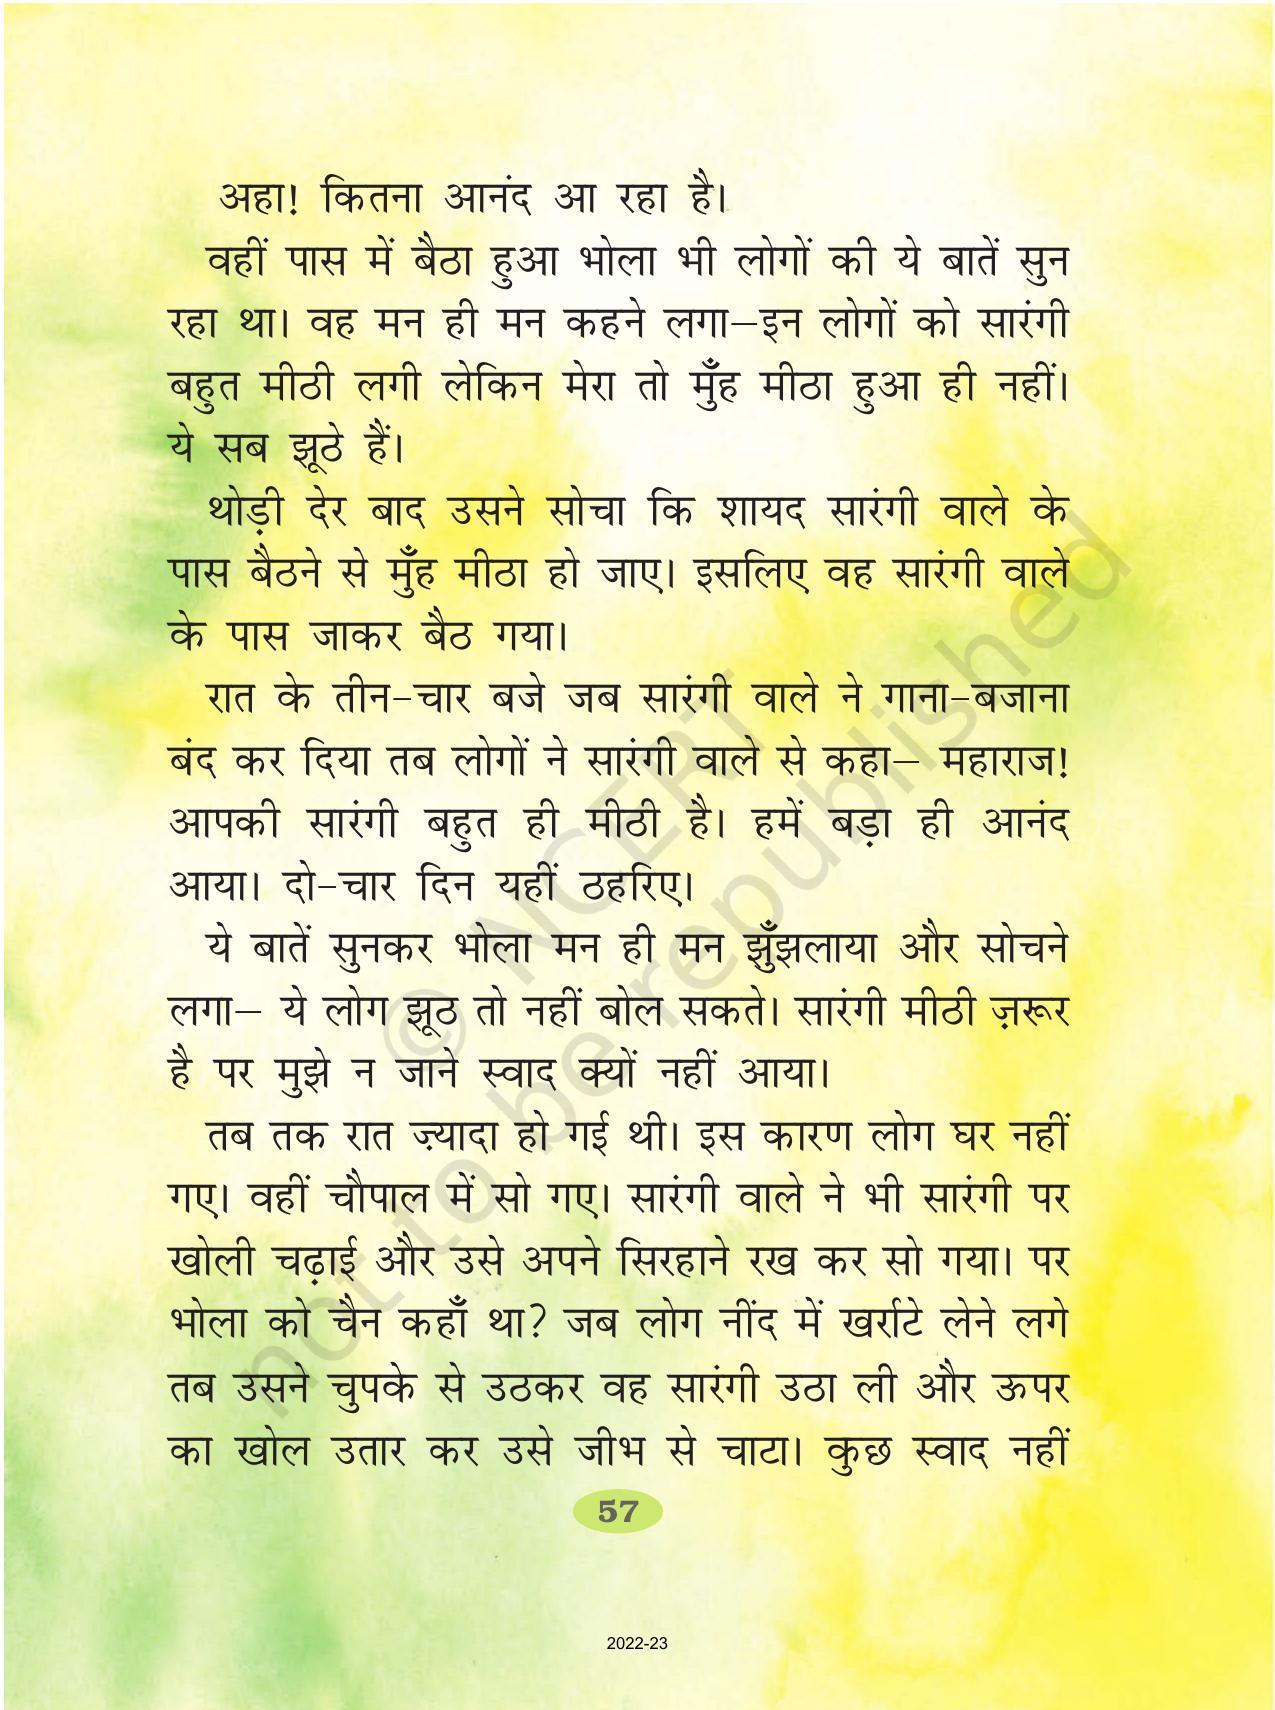 अहा! कितना आनंद आ रहा है।
वहीं पास में बैठा हुआ भोला भी लोगों की ये बातें सुन
रहा था। वह मन ही मन कहने लगा–इन लोगों को सारंगी
बहुत मीठी लगी लेकिन मेरा तो मुँह मीठा हुआ ही नहीं।
ये सब झूठे हैं।
थोड़ी देर बाद उसने सोचा कि शायद सारंगी वाले के
पास बैठने से मुँह मीठा हो जाए। इसलिए वह सारंगी वाले
के पास जाकर बैठ गया।
रात के तीन-चार बजे जब सारंगी वाले ने गाना-बजाना
बंद कर दिया तब लोगों ने सारंगी वाले से कहा– महाराज!
आपकी सारंगी बहुत ही मीठी है। हमें बड़ा ही आनंद
आया। दो-चार दिन यहीं ठहरिए।
ये बातें सुनकर भोला मन ही मन झुँझलाया और सोचने
लगा– ये लोग झूठ तो नहीं बोल सकते। सारंगी मीठी ज़रूर
है पर मुझे न जाने स्वाद क्यों नहीं आया।
तब तक रात ज़्यादा हो गई थी। इस कारण लोग घर नहीं
गए। वहीं चौपाल में सो गए। सारंगी वाले ने भी सारंगी पर
खोली चढ़ाई और उसे अपने सिरहाने रख कर सो गया। पर
भोला को चैन कहाँ था? जब लोग नींद में खर्राटे लेने लगे
तब उसने चुपके से उठकर वह सारंगी उठा ली और ऊपर
का खोल उतार कर उसे जीभ से चाटा। कुछ स्वाद नहीं
57
2022-23
© NCERT
not to be republished